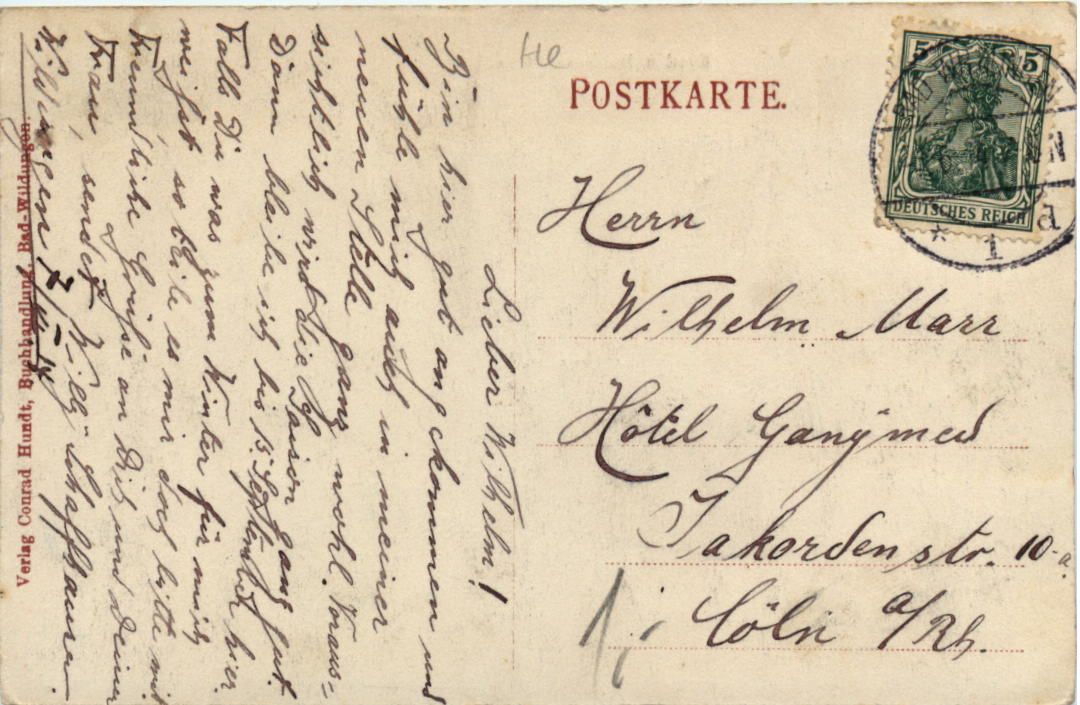 Lieber Wilhelm!
Bin hier gut angekommen und
fühle mich auch in meiner
neuen Stelle ganz wohl. Voraus=
sichtlich wird die Saison ganz gut.
Dann bleibe ich bis 15. September hier.
Falls Du was zum Winter für mich
weißst so teile es mir doch bitte mit
Freundliche Grüße an Dich und Deiner
Frau, sendet Willy Schaffhauser.
Wildungen
Verlag Conrad Hundt, Buchhandlung, Bad-Wildungen.
He
POSTKARTE.
5 5
DEUTSCHES REICH
BAD WILDUNGEN
* 1 a
Herrn
Wilhelm Marr
Hôtel Ganÿmed
Jakordenstr. 10-a.
Cöln a/Rh.